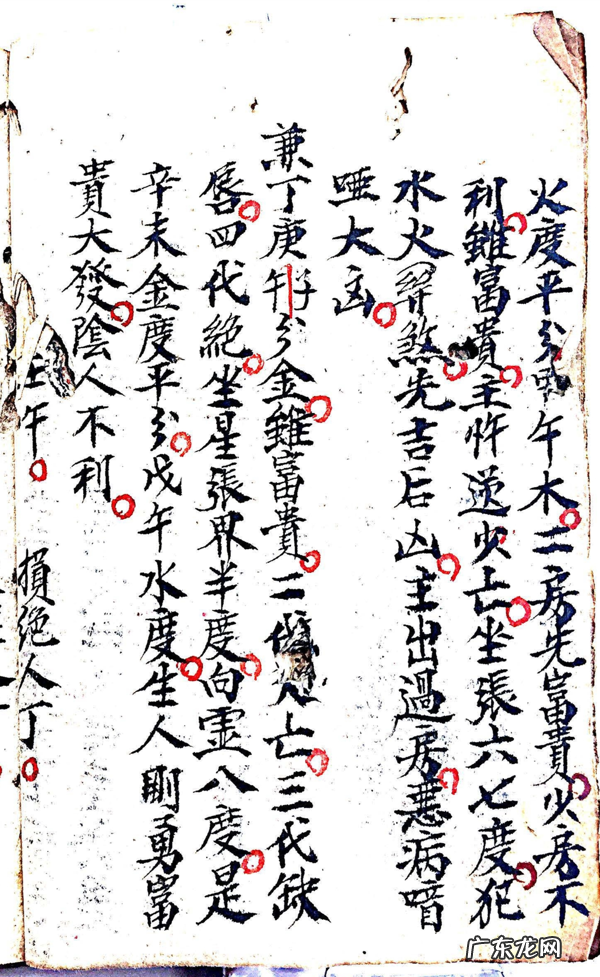 火度平分甲午木二房先富貴少房不
利雖富貴主忤逆少亡坐張六七度犯
水火煞先吉后凶主出過房惡病喑
啞大凶
兼丁庚午分金雖富貴二代人亡三代缺
唇四代絶坐星張界半度向虛八度是
辛未金度平分戊午水度生人剛勇富
貴大發陰人不利
壬午 損絶人丁
广东龙网